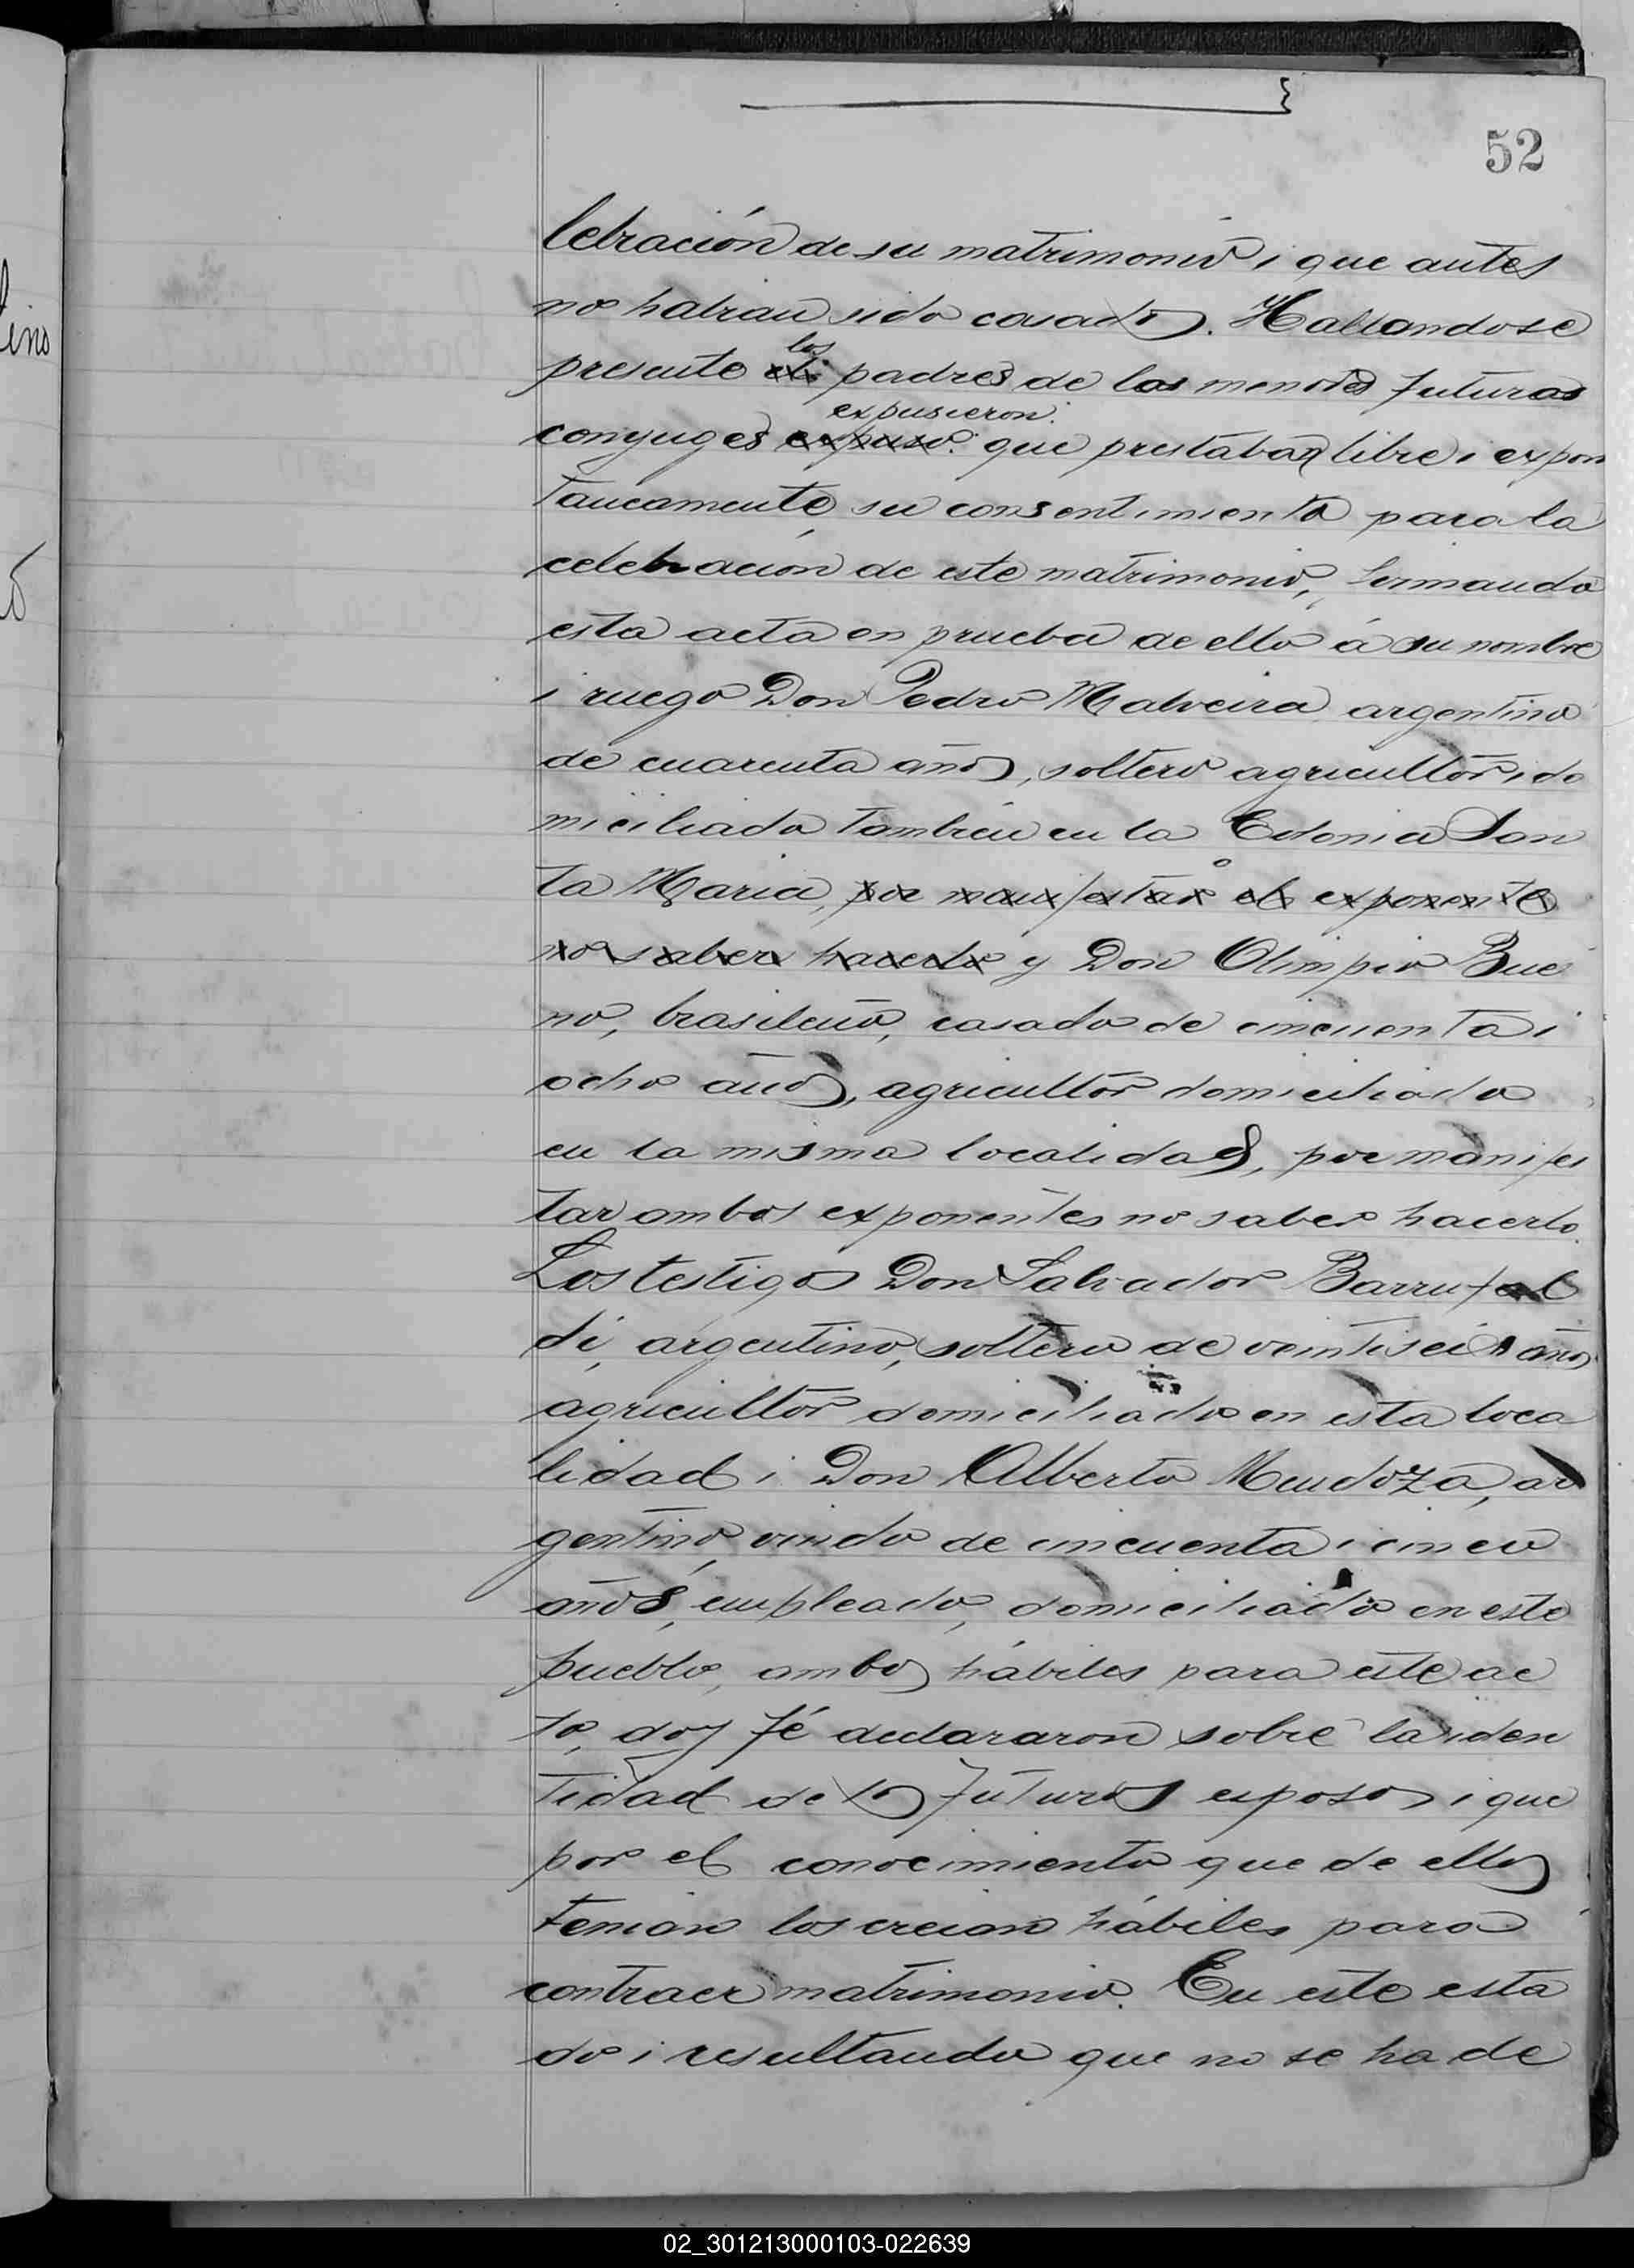 52
lebración de su matrimonio i que antes
no habian sido casados. Hallandose
los
presente el padres de los menores futuros
expusieron
conyuges expuso: que prestaban libre i expon
taneamente su consentimiento para la
celebracion de este matrimonio, firmando
esta acta en prueba de ello á su nombre
i ruego Don Pedro Malveira argentino
de cuarenta años, soltero agricultor i do
miciliado tambien en la Colonia San
ta Maria, por manifestar el exponente
no saber hacerlo y Don Olimpio Bue
no, brasileño, casado de cincuenta i
ocho años, agricultor domiciliado
en la misma localidad, por manifes
tar ambos exponentes no saber hacerlo.
Los testigos Don Salvador Barrufal
di, argentino, soltero de veintiseis años
agricultor domiciliado en esta loca
lidad i Don Alberto Mendoza, ar
gentino, viudo de cincuenta i cinco
años, empleado, domiciliado en este
pueblo, ambos hábiles para este ac
to, doy fé declararon sobre la iden
tidad de los futuros esposos i que
por el conocimiento que de ellos
tenian los creian hábiles para
contraer matrimonio. En este esta
do i resultando que no se ha de
tino
02_301213000103-022639